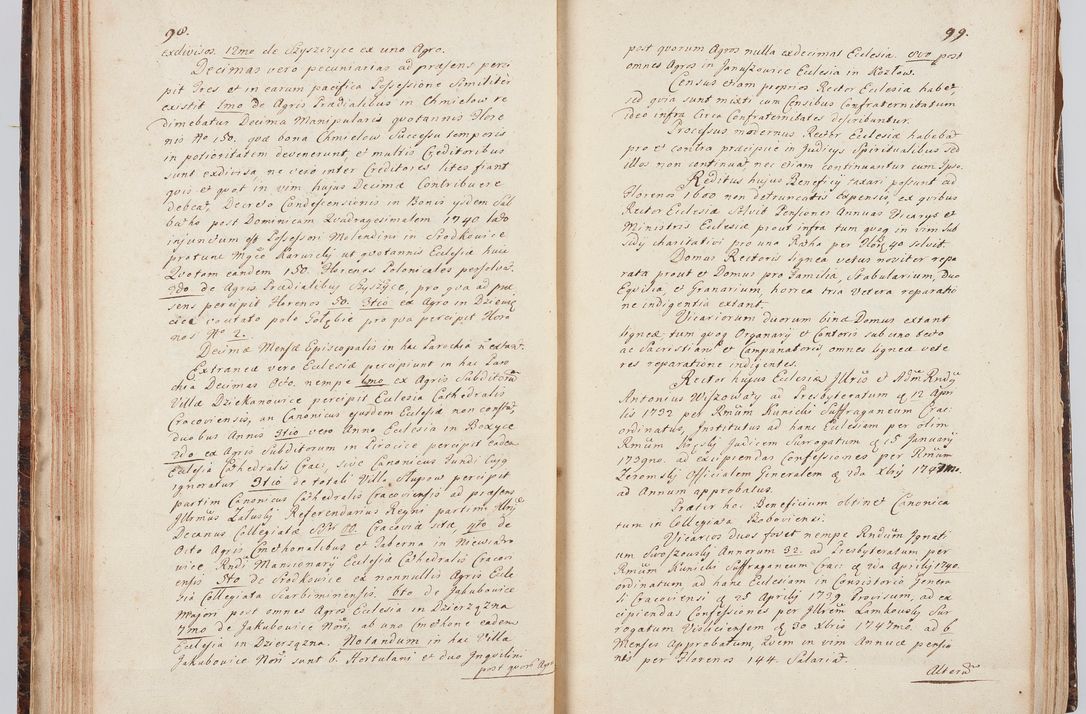 98.
ex divisos. 12mo de Szyszczyce ex uno Agro.
Decimas vero pecuniarias ad præsens perci
pit Tres et in earum pacifica Possessione Similiter
existit 1mo de Agris Prædialibus in Chmielow re
dimebatur Decima Manipularis quotannis Flore
nis No 150. quæ bona Chmielow Successu temporis
in potioritatem devenerunt, et multis Creditoribus
sunt exdivisa, ne vero inter Creditores lites fiant
quis et quot in vim hujus Decimæ Contribuere
debeat, Decreto Condescensionis in Bonis ysdem Sab
batho post Dominicam Quadragesimalem 1740 lato
injunctum est Possessori Molendini in Srodkowice
protunc Mgco Karwickj ut quotannis Eclesiæ huic
Quotam eandem 150. Florenos Polonicales persolvat.
2do de Agris Prædialibus Szyszyce, pro qua ad præ
sens percipit Florenos 50. 3tio ex Agro in Dziewię
cice vocitato pole Gołębie pro qua percipit Flore
nos No 2.
Decimæ Mensæ Episcopalis in hac Parochia n extant.
Extraneæ vero Eclesiæ percipiunt in hac Paro
chia Decimas Octo. nempe 1mo ex Agris Subditorum
Villæ Dziekanowice percipit Eclesia Cathedralis
Cracoviensis, an Canonicus ejusdem Eclesiæ non constat,
duobus Annis 3tio vero Anno Eclesia in Boxyce
2do ex Agris Subditorum in Pirocice percipit eadem
Eclesia Cathedralis Crac. sive Canonicus Fundi Cujg
ignoratur 3tio de totali Villa Stupow percipit
partim Canonicus Cathedralis Cracoviensis ad præsens
Illrmus Zaluskj Referendarius Regni partim Illris
Decanus Collegiatæ SStr OO. Cracoviæ sitæ, 4to de
Octo Agris Cmethonalibus et Taberna in Niewiadro
wice Rndi Mansionarij Eclesiæ Cathedralis Cracovi
ensis 5to de Srodkowice ex nonnullis Agris Ecle
sia Collegiata Scarbimiriensis. 6to de Jakubowice
Majori post omnes Agros Eclesia in Dzierzązna
7mo de Jakubowice Nori, ab uno Cmethone eadem
Eclesia in Dzierzązna. Notandum in hac Villa
Jakubowice Nori sunt 6. Hortulani et duo Inquilini
post quorum Agros
99.
post quorum Agros nulla ex decimat Eclesia. 8vo post
omnes Agros in Januszowice Eclesia in Kozłow.
Census etiam proprios Rector Eclesiæ habet
sed quia sunt mixti cum Censibus Confraternitatum
ideo infra Circa Confraternitates describuntur.
Processus modernus Rector Eclesiæ habebat
pro et contra præcipue in Judicijs Spiritualibus sed
illos non continuat nec etiam continuantur cum Ipso.
Reditus hujus Beneficij taxari possunt ad
Florenos 1600 non detruncatis Expensis, ex quibus
Rector Eclesiæ Solvit Pensiones Annuas Vicarijs et
Ministris Eclesiæ prout infra tum quoq in vim Sub
sidij charitativi pro una Ratha per Flor 40 solvit.
Domus Rectoris lignea vetus noviter repa
rata prout et Domus pro Familia, Stabularium, duo
Equilia et Granarium, horrea tria Vetera reparatio
ne indigentia extant.
Vicariorum duorum binæ Domus extant
ligneæ tum quoq Organarij et Cantoris sub uno tecto
ac Sacristiani et Campanatoris, omnes ligneæ vete
res reparatione indigentes.
Rector hujus Eclesiæ Illris et Adm Rndg
Antonius Wiszowaty ad Presbyteratum d 12 Apri
lis 1732 per Rmum Kunicki Suffraganeum Crac:
ordinatus, Institutus ad hanc Eclesiam per olim
Rmum Judicem Surrogatum d 15 January
1739no. ad excipiendas Confessiones per Rmum
Zeromskj Officialem Generalem d 2da Xbrij 1747mo.
ad Annum approbatus.
Præter hoc Beneficium obtinet Canonica
tum in Collegiata Skoboviensi.
Vicarios duos fovet nempe Rndum Ignati
um Swoszowskj Annorum 32. ad Presbyteratum per
Rmum Kunicki Suffraganeum Crac: d 2da Aprilis 1740.
ordinatum ad hanc Eclesiam in Consistorio Genera
li Cracoviensi d 25 Aprilij 1739 Provisum, ad ex
cipiendas Confessiones per Illrem Lamkowskj Sur
rogatum Visliciensem d 30 Xbris 1747mo, ad 6
Menses Approbatum, Quem in vim Annuæ pensio
nis per Florenos 144. Salariat.
Alterum